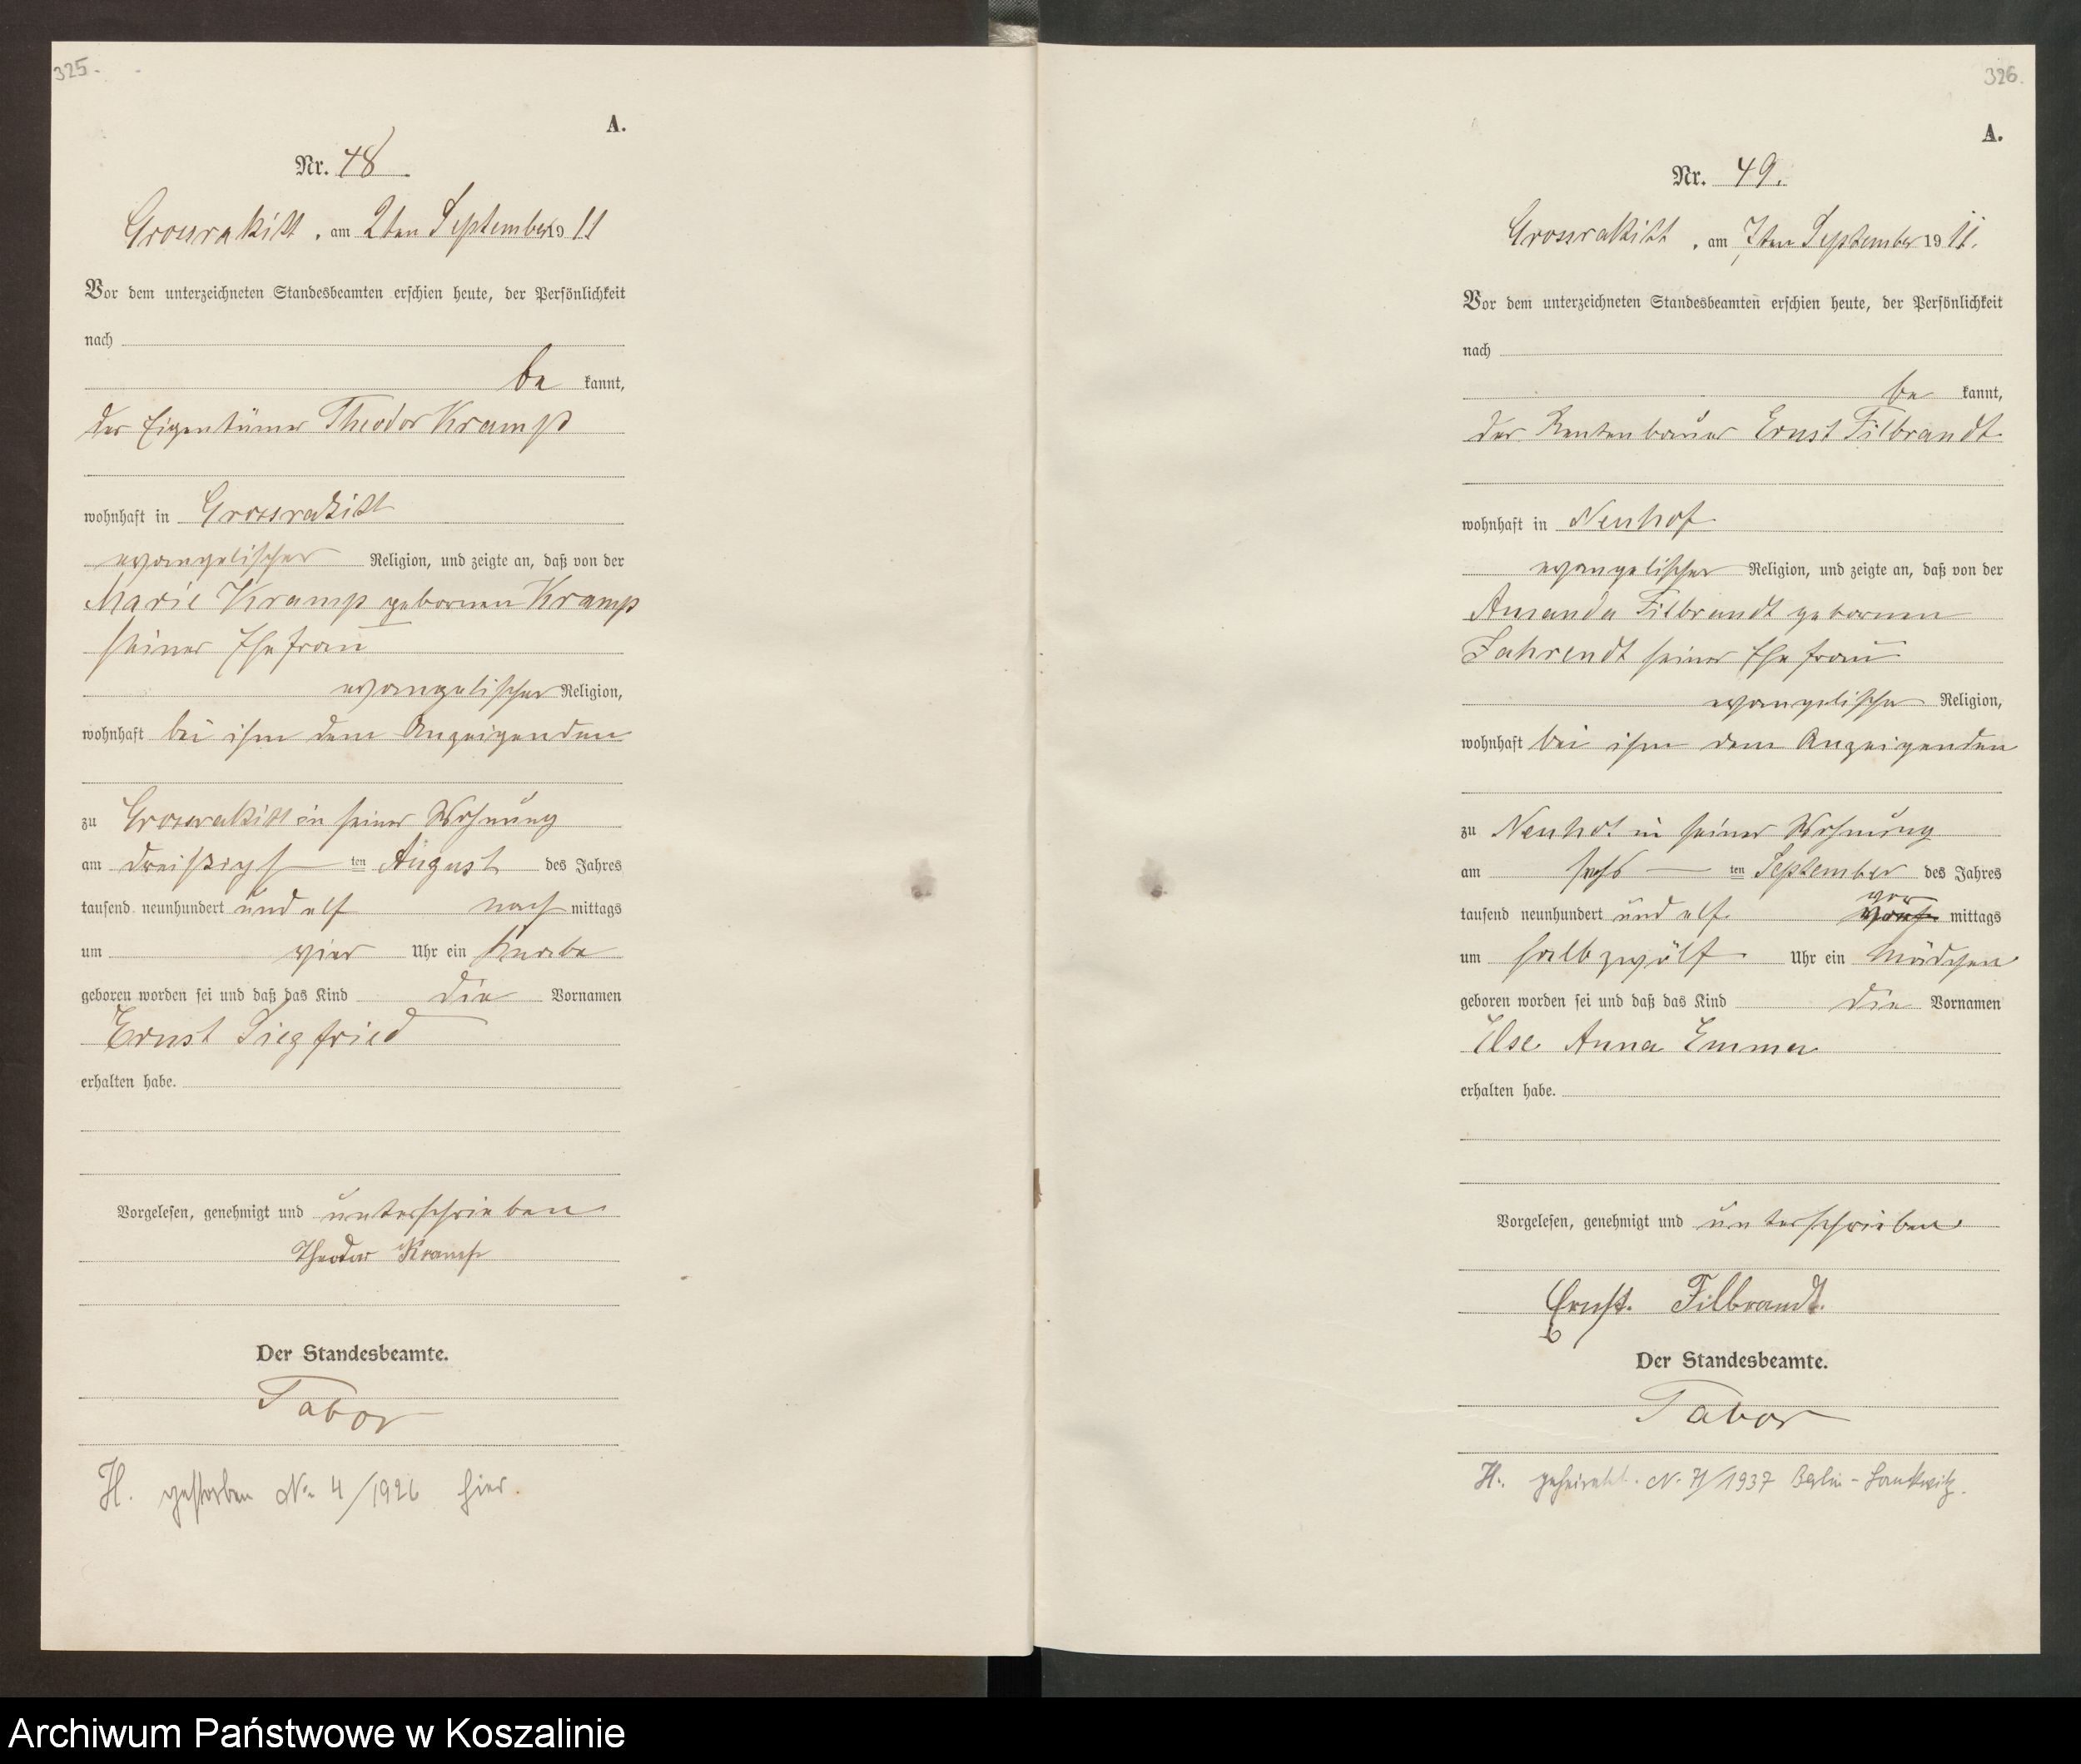 325.
A.
Nr. 48.
Grossrakitt, am 2ten September 1911
Vor dem unterzeichneten Standesbeamten erschien heute, der Persönlichkeit
nach
be kannt,
der Eigentümer Theodor Kramp
wohnhaft in Grossrakitt
evangelischer Religion, und zeigte an, daß von der
Marie Kramp gebornen Kramp
seiner Ehefrau
evangelischer Religion,
wohnhaft bei ihm dem Anzeigenden
zu Grossrakitt in seiner Wohnung
am dreißigsten August des Jahres
tausend neunhundert und elf nachmittags
um vier Uhr ein Knabe
geboren worden sei und daß das Kind die Vornamen
Ernst Siegfried
erhalten habe.
Vorgelesen, genehmigt und unterschrieben
Theodor Kramp
Der Standesbeamte.
Tabor
H. gestorben No 4/1926 hier.
326.
A.
Nr. 49.
Grossrakitt, am 7ten September 1911.
Vor dem unterzeichneten Standesbeamten erschien heute, der Persönlichkeit
nach
be kannt,
der Rentenbauer Ernst Filbrandt
wohnhaft in Neuhof
evangelischer Religion, und zeigte an, daß von der
Amanda Filbrandt gebornen
Fahrendt seiner Ehefrau
evangelischer Religion,
wohnhaft bei ihm dem Anzeigenden
zu Neuhof in seiner Wohnung
am sechsten September des Jahres
tausend neunhundert und elf vor mittags
um halb zwölf Uhr ein Mädchen
geboren worden sei und daß das Kind die Vornamen
Else Anna Emma
erhalten habe.
Vorgelesen, genehmigt und unterschrieben
Ernst Filbrandt.
Der Standesbeamte.
Tabor
H. geheiratet. No 71/1937 Berlin-Lankwitz.
Archiwum Państwowe w Koszalinie